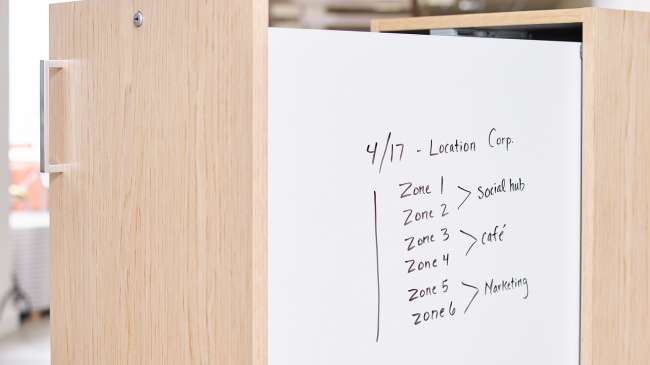 4/17 - Location Corp.
Zone 1
Zone 2 > Social hub
Zone 3
Zone 4 > café
Zone 5
Zone 6 > Marketing